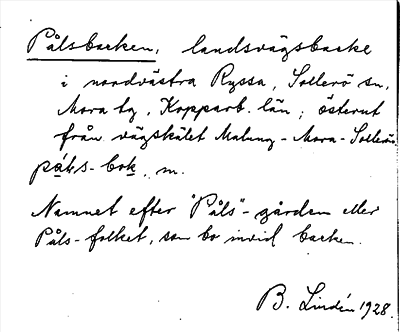 Pålsbacken, landsvägsbacke
i nordvästra Ryssa, Sollerö sn,
Mora tg, Kopparb. län; österut
från vägskälet Malung-Mora-Sollerön
påks-bok, m.
Namnet efter "Påls"-gården eller
Påls-folket, som bo invid backen.
B. Lindén 1928.